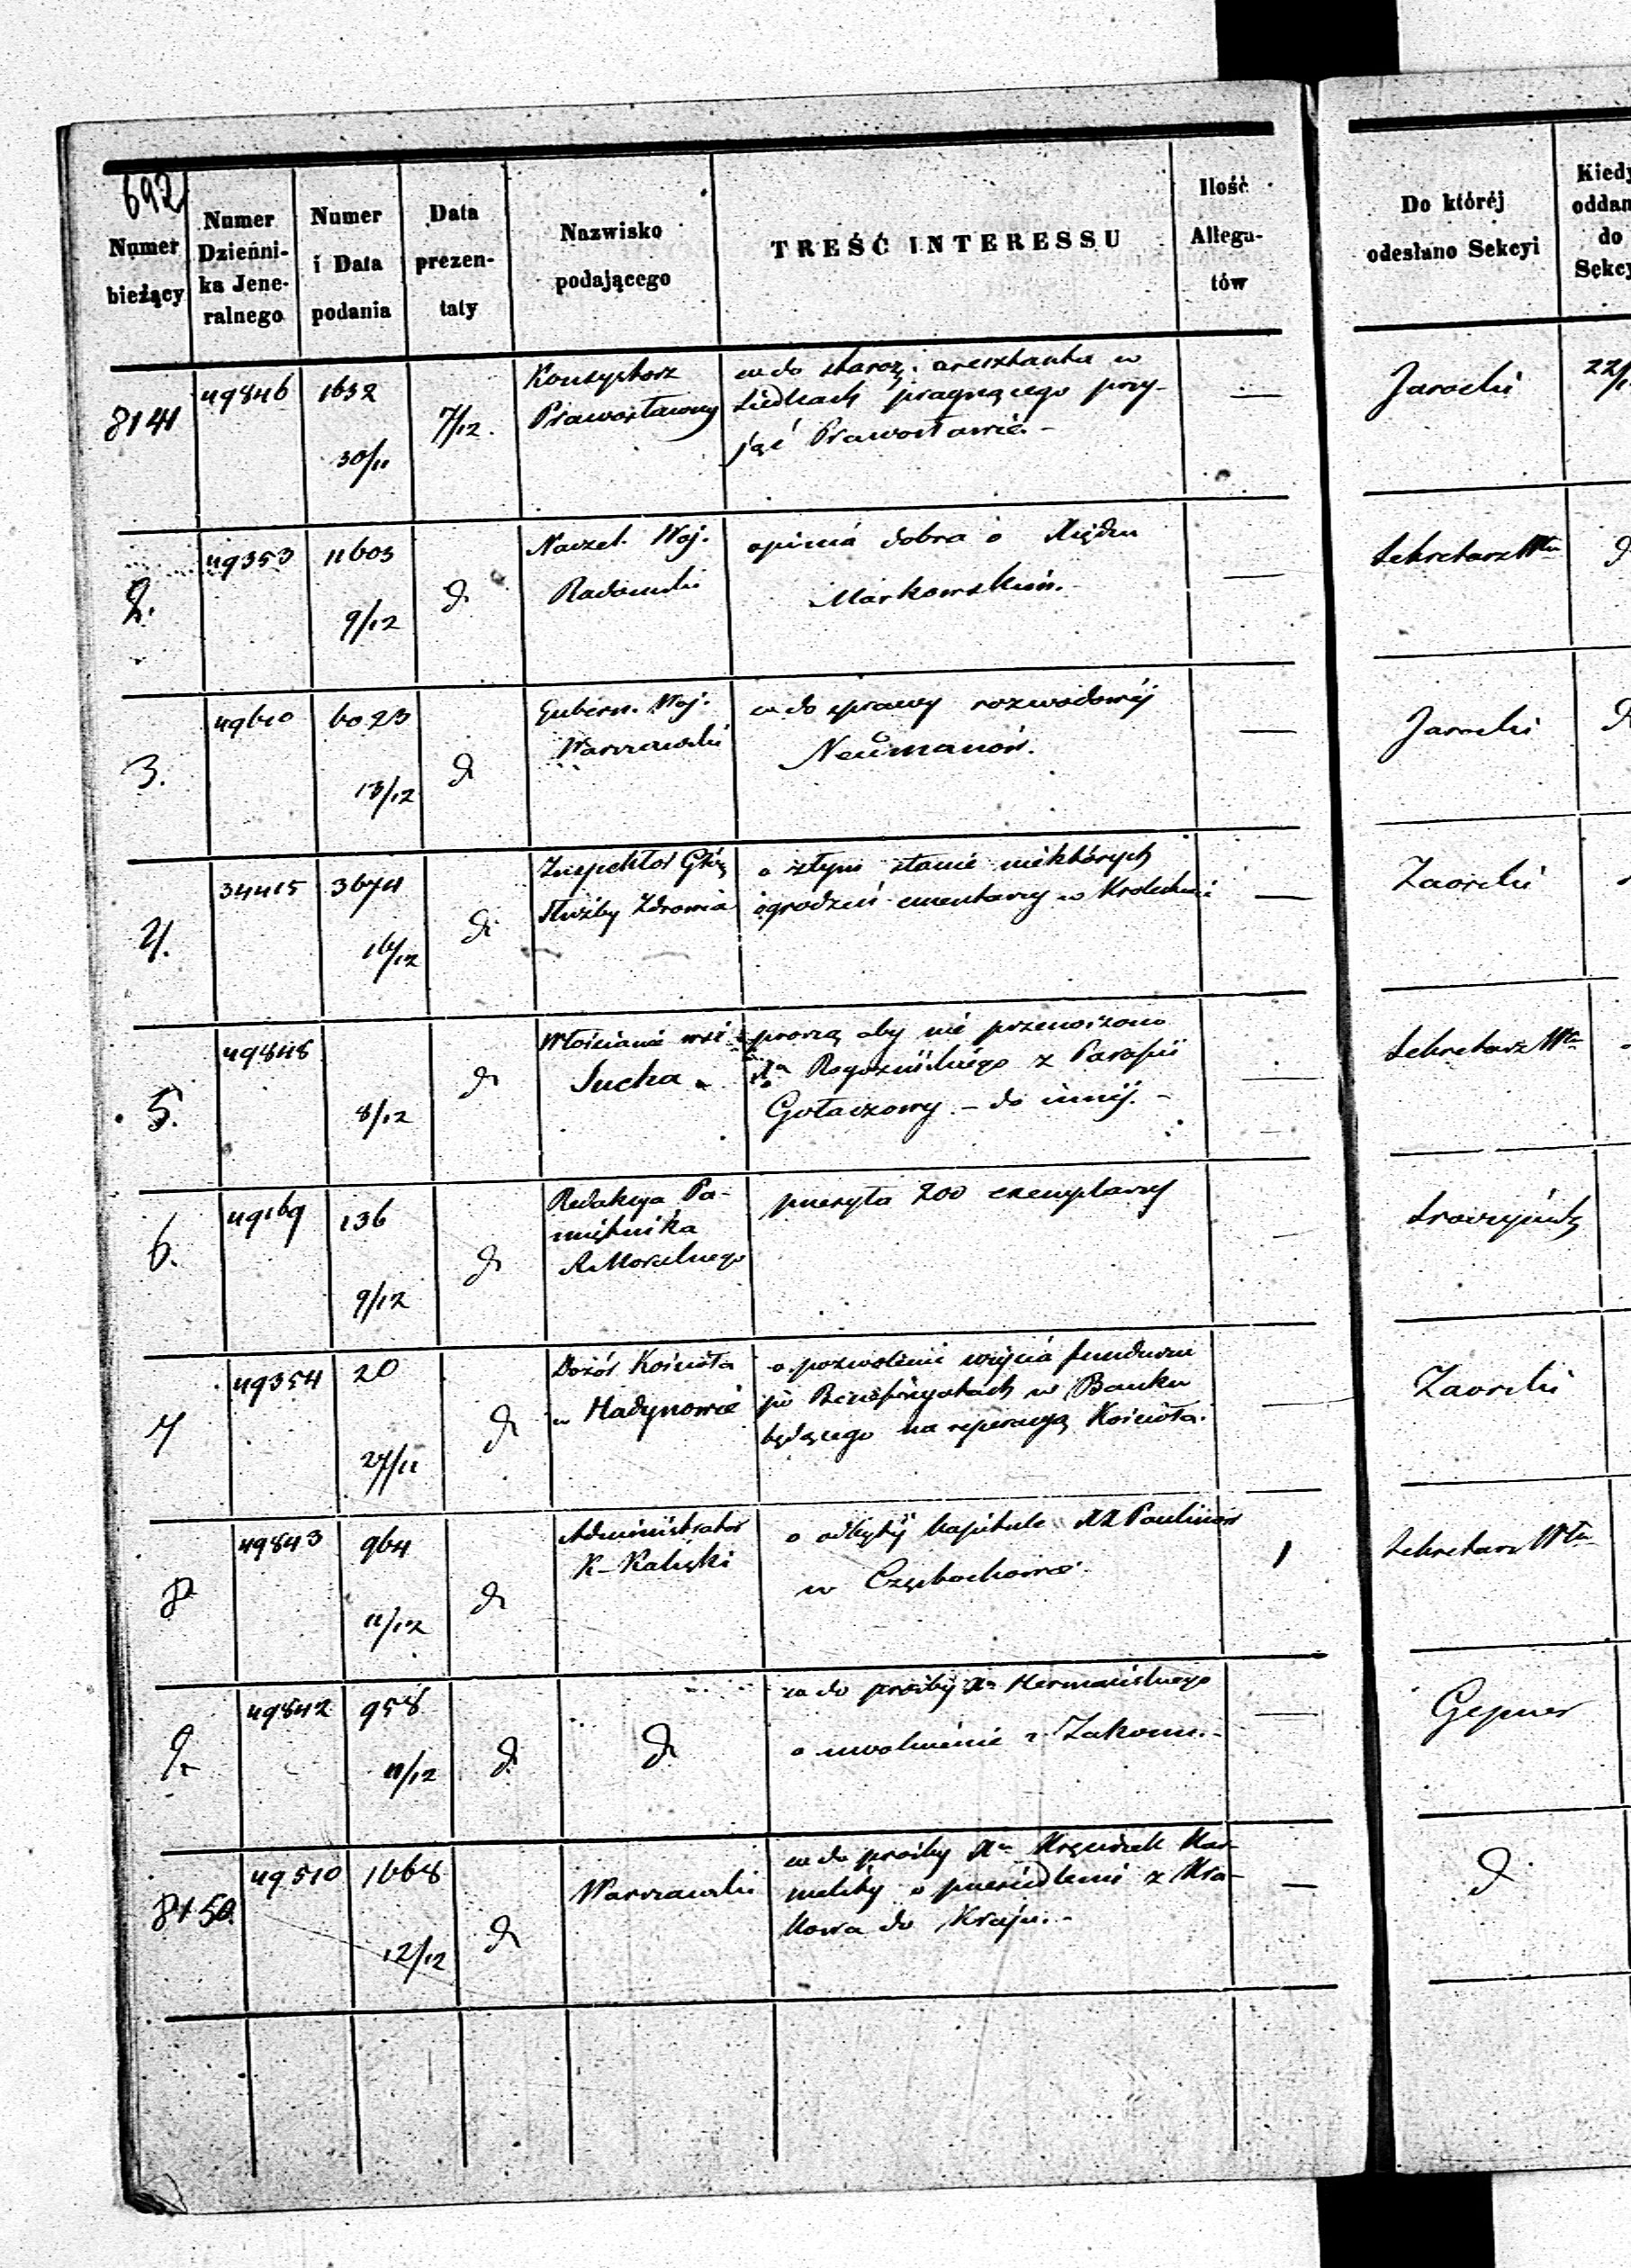 692
Numer bieżący
Numer Dzienni- ka Jene- ralnego
Numer i Data podania
Data prezen- taty
Nazwisko podającego
TREŚĆ INTERESSU
Ilość Allega- tów
Do któréj odesłano Sekcyi
8141 49846 1632 30/11 7/12
Konsystorz
Prawosławny
co do staroz: aresztanta w
Siedlcach pragnącego przy-
jąć Prawosławie -
Jarocki
2. 49353 11603 9/12 d
Naczel. Woj.
Radomski
opinia dobra o Księdzu
Markowskim.
Sekretarz
3. 49610 6023 13/12 d
Gubern. Woj.
Warszawski
co do sprawy rozwodowéj
Neümanów.
Jarocki
4. 34415 3674 d
Inspektor
Służby Zdrowia
o złym stanie niektórych
ogrodzeń cmentarzy w
Zaorski
5. 49848 8/12 d
Włościanie wsi
Sucha
proszą aby nie przenoszono
Rogozińskiego z Parafii
Gołaczowy - do innéj. -
Sekretarz
6. 49169 136 9/12 d
Redakcya Pa-
miętnika
R. Moralnego
przesyła 200 exemplarzy
7 49354 20 27/11 d
Dozór Kościoła
w Hadynowie
o pozwolenie użycia funduszu
po Benefícyatach w Banku
będącego na reperacyą Kościoła.
Zaorski
8 49843 964 11/12 d
Administrator
K-Kaliski
o odbytéj kapitule XX Paulinów
w Częstochowie.
1
Sekretarz
9. 49842 958 11/12 d
d
co do prośby Xa Hermańskiego
o uwolnienie z Zakonu. -
Gepner
8150. 49510 1668 12/12 d
Warszawski
co do prośby Xa Kar-
melity o przesiedlenie z Kra-
kowa do Kraju. -
d